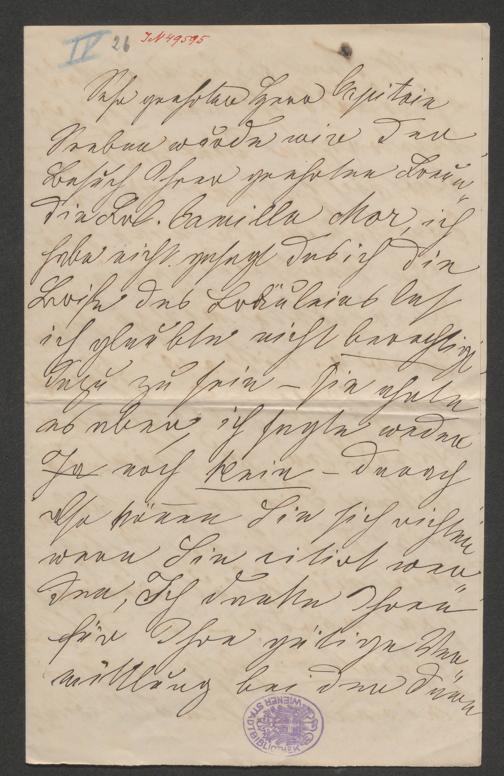 IV 26 IN 49595
Sehr geehrter Herr Capitain
Soeben wurde mir der
Besuch Ihrer geehrten Freun¬
din Frl. Camilla Mor, ich
habe nicht gesagt das ich die
Briefe des Fräuleins las
ich glaubte nicht berechtigt
dazu zu sein – Sie ahnte
es aber, ich sagte weder
Ja noch Nein – darnach
also können Sie sich richten
wenn Sie citirt wer
den, Ich danke Ihnen
für Ihre gütige Ver
mittlung bei dem
WIENER STADTBIBLIOTHEK